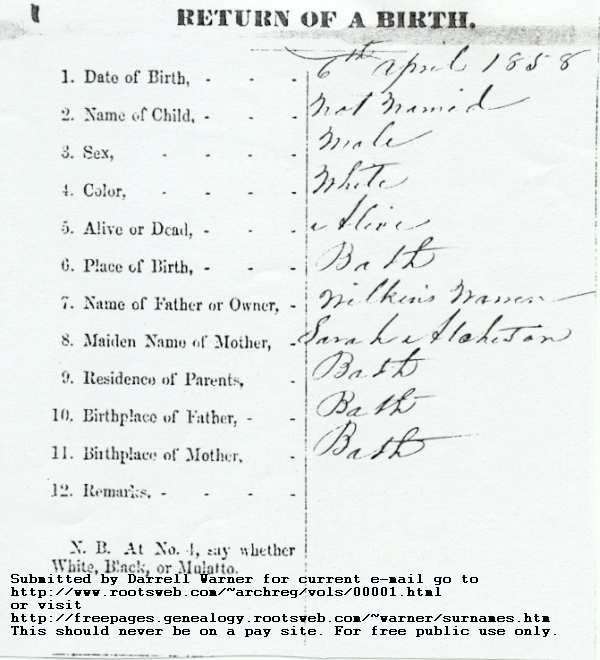 RETURN OF A BIRTH.
1. Date of Birth, - - - 6th April 1858
2. Name of Child, - - - Not Named
3. Sex, - - - - Male
4. Color, - - - - White
5. Alive or Dead, - - - Alive
6. Place of Birth, - - - Bath
7. Name of Father or Owner, - Wilkins Warner
8. Maiden Name of Mother, - Sarah Atcheson
9. Residence of Parents, - Bath
10. Birthplace of Father, - - Bath
11. Birthplace of Mother, - Bath
12. Remarks, - - - -
N. B. At No. 4, say whether
White, Black, or Mulatto.
Submitted by Darrell Warner for current e-mail go to
http://www.rootsweb.com/~archreg/vols/00001.html
or visit
http://freepages.genealogy.rootsweb.com/~warner/surnames.htm
This should never be on a pay site. For free public use only.